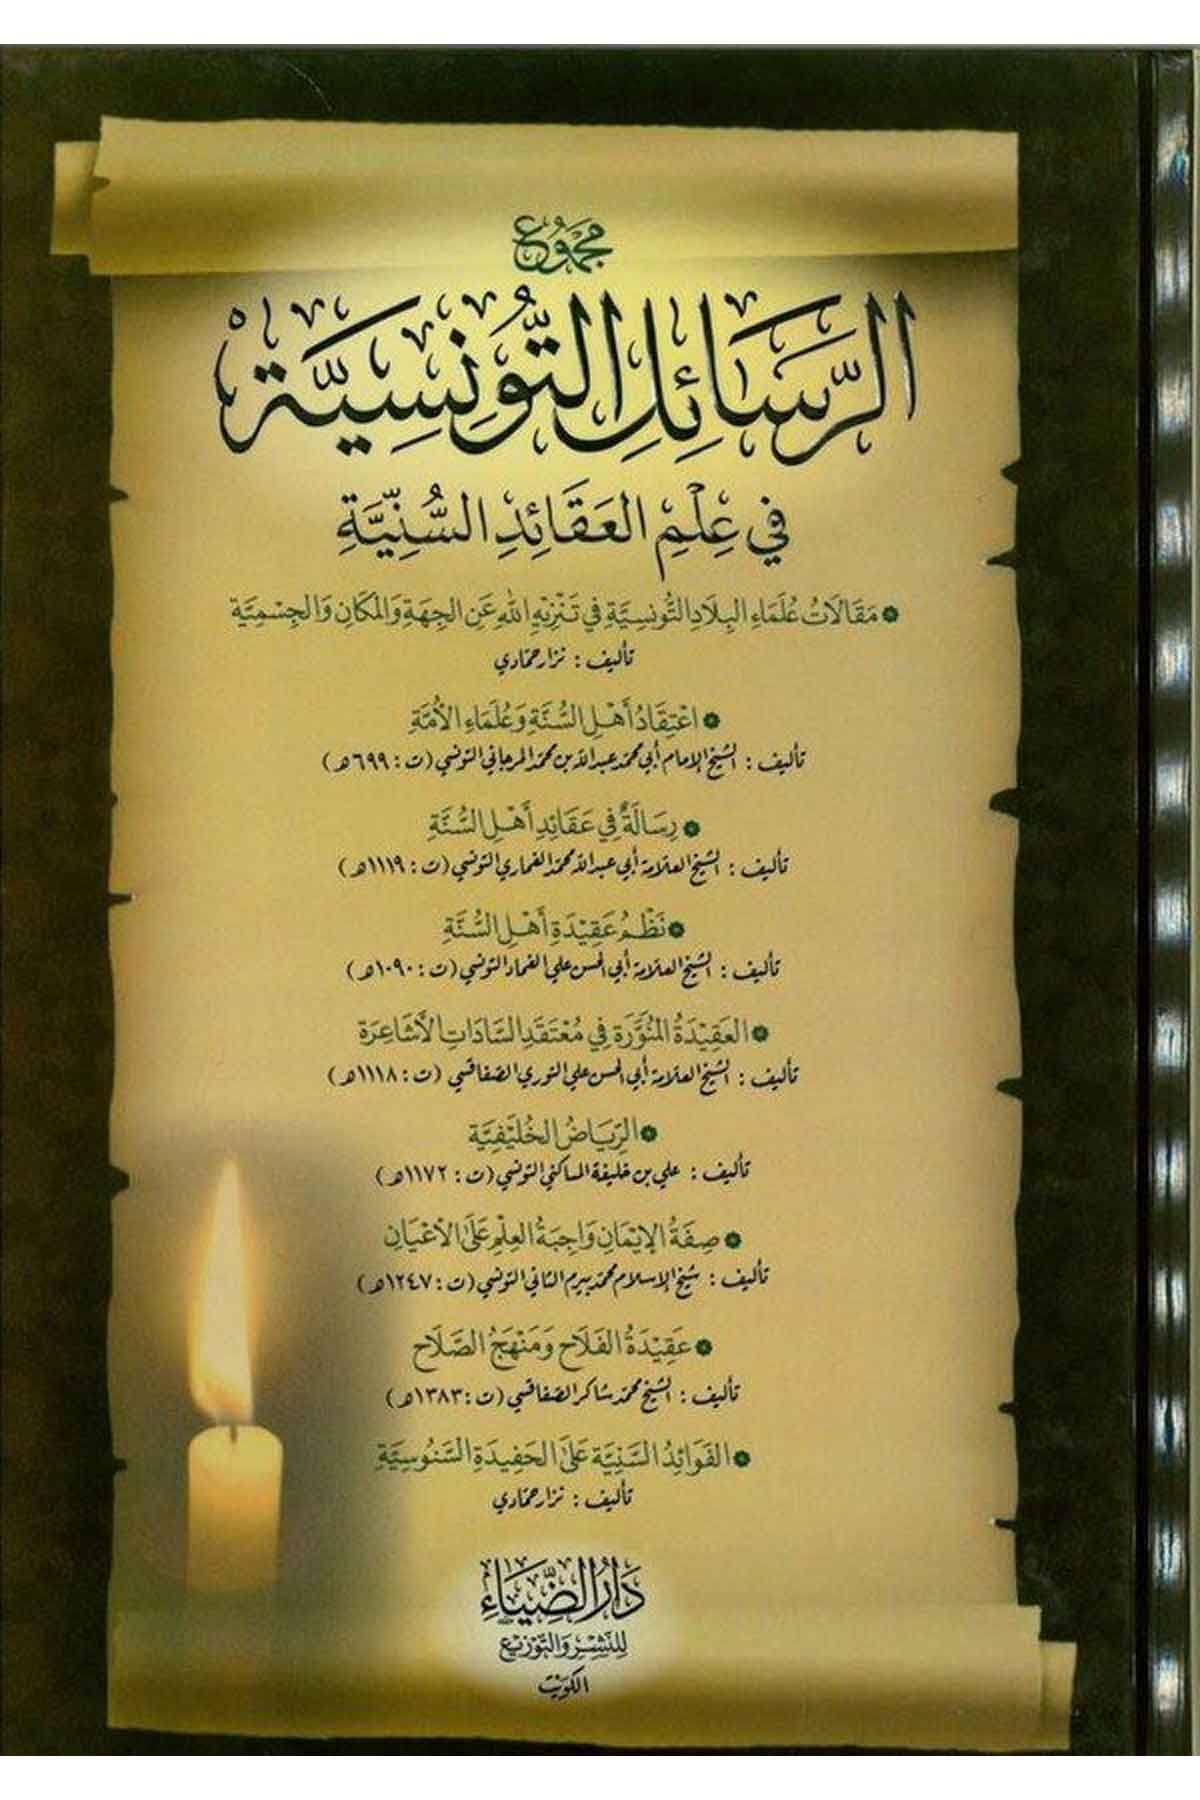 مجموع
الرَّسَائِلِ التُّونِسِيَّةِ
في عِلْمِ العَقَائِدِ السُّنِّيَّةِ
مَقَالَاتُ عُلَمَاءِ البِلَادِ التُّونِسِيَّةِ فِي تَنْزِيْهِ اللهِ عَنِ الجِهَةِ وَالمَكَانِ وَالجِسْمِيَّة
تأليف : نزار حمّادي
اعْتِقَادُ أَهْلِ السُّنَّةِ وَعُلَمَاءِ الأُمَّةِ
تأليف : الشيخ الإمام أبي محمّد عبد الله بن محمّد المرجاني التونسي (ت : ٦٩٩هـ)
رِسَالَةٌ فِي عَقَائِدِ أَهْلِ السُّنَّةِ
تأليف : الشيخ العلامة أبي عبد الله محمّد الغماري التونسي (ت : ١١١٩هـ)
نَظْمُ عَقِيْدَةِ أَهْلِ السُّنَّةِ
تأليف : الشيخ العلامة أبي الحسن علي الغماد التونسي (ت : ١٠٩٠هـ)
العَقِيْدَةُ المُنَوَّرَة فِي مُعْتَقَدِ السَّادَاتِ الأَشَاعِرَة
تأليف : الشيخ العلامة أبي الحسن علي النوري الصفاقسي (ت : ١١١٨هـ)
الرِّيَاضُ الخُلَيْفِيَّة
تأليف : علي بن خليفة المساكني التونسي (ت : ١١٧٢هـ)
صِفَةُ الإِيْمَانِ وَاجِبَةُ العِلْمِ عَلَى الأَعْيَانِ
تأليف : شيخ الإسلام محمّد بيرم الثاني التونسي (ت : ١٢٤٧هـ)
عَقِيْدَةُ الفَلَاحِ وَمَنْهَجُ الصَّلَاحِ
تأليف : الشيخ محمّد شاكر الصفاقسي (ت : ١٣٨٣هـ)
الفَوَائِدُ السَّنِيَّة عَلَى الحَفِيْدَةِ السَّنُوسِيَّةِ
تأليف : نزار حمّادي
دَارُ الضِّيَاءِ
لِلنَّشْرِ وَالتَّوْزِيْعِ
الكويت